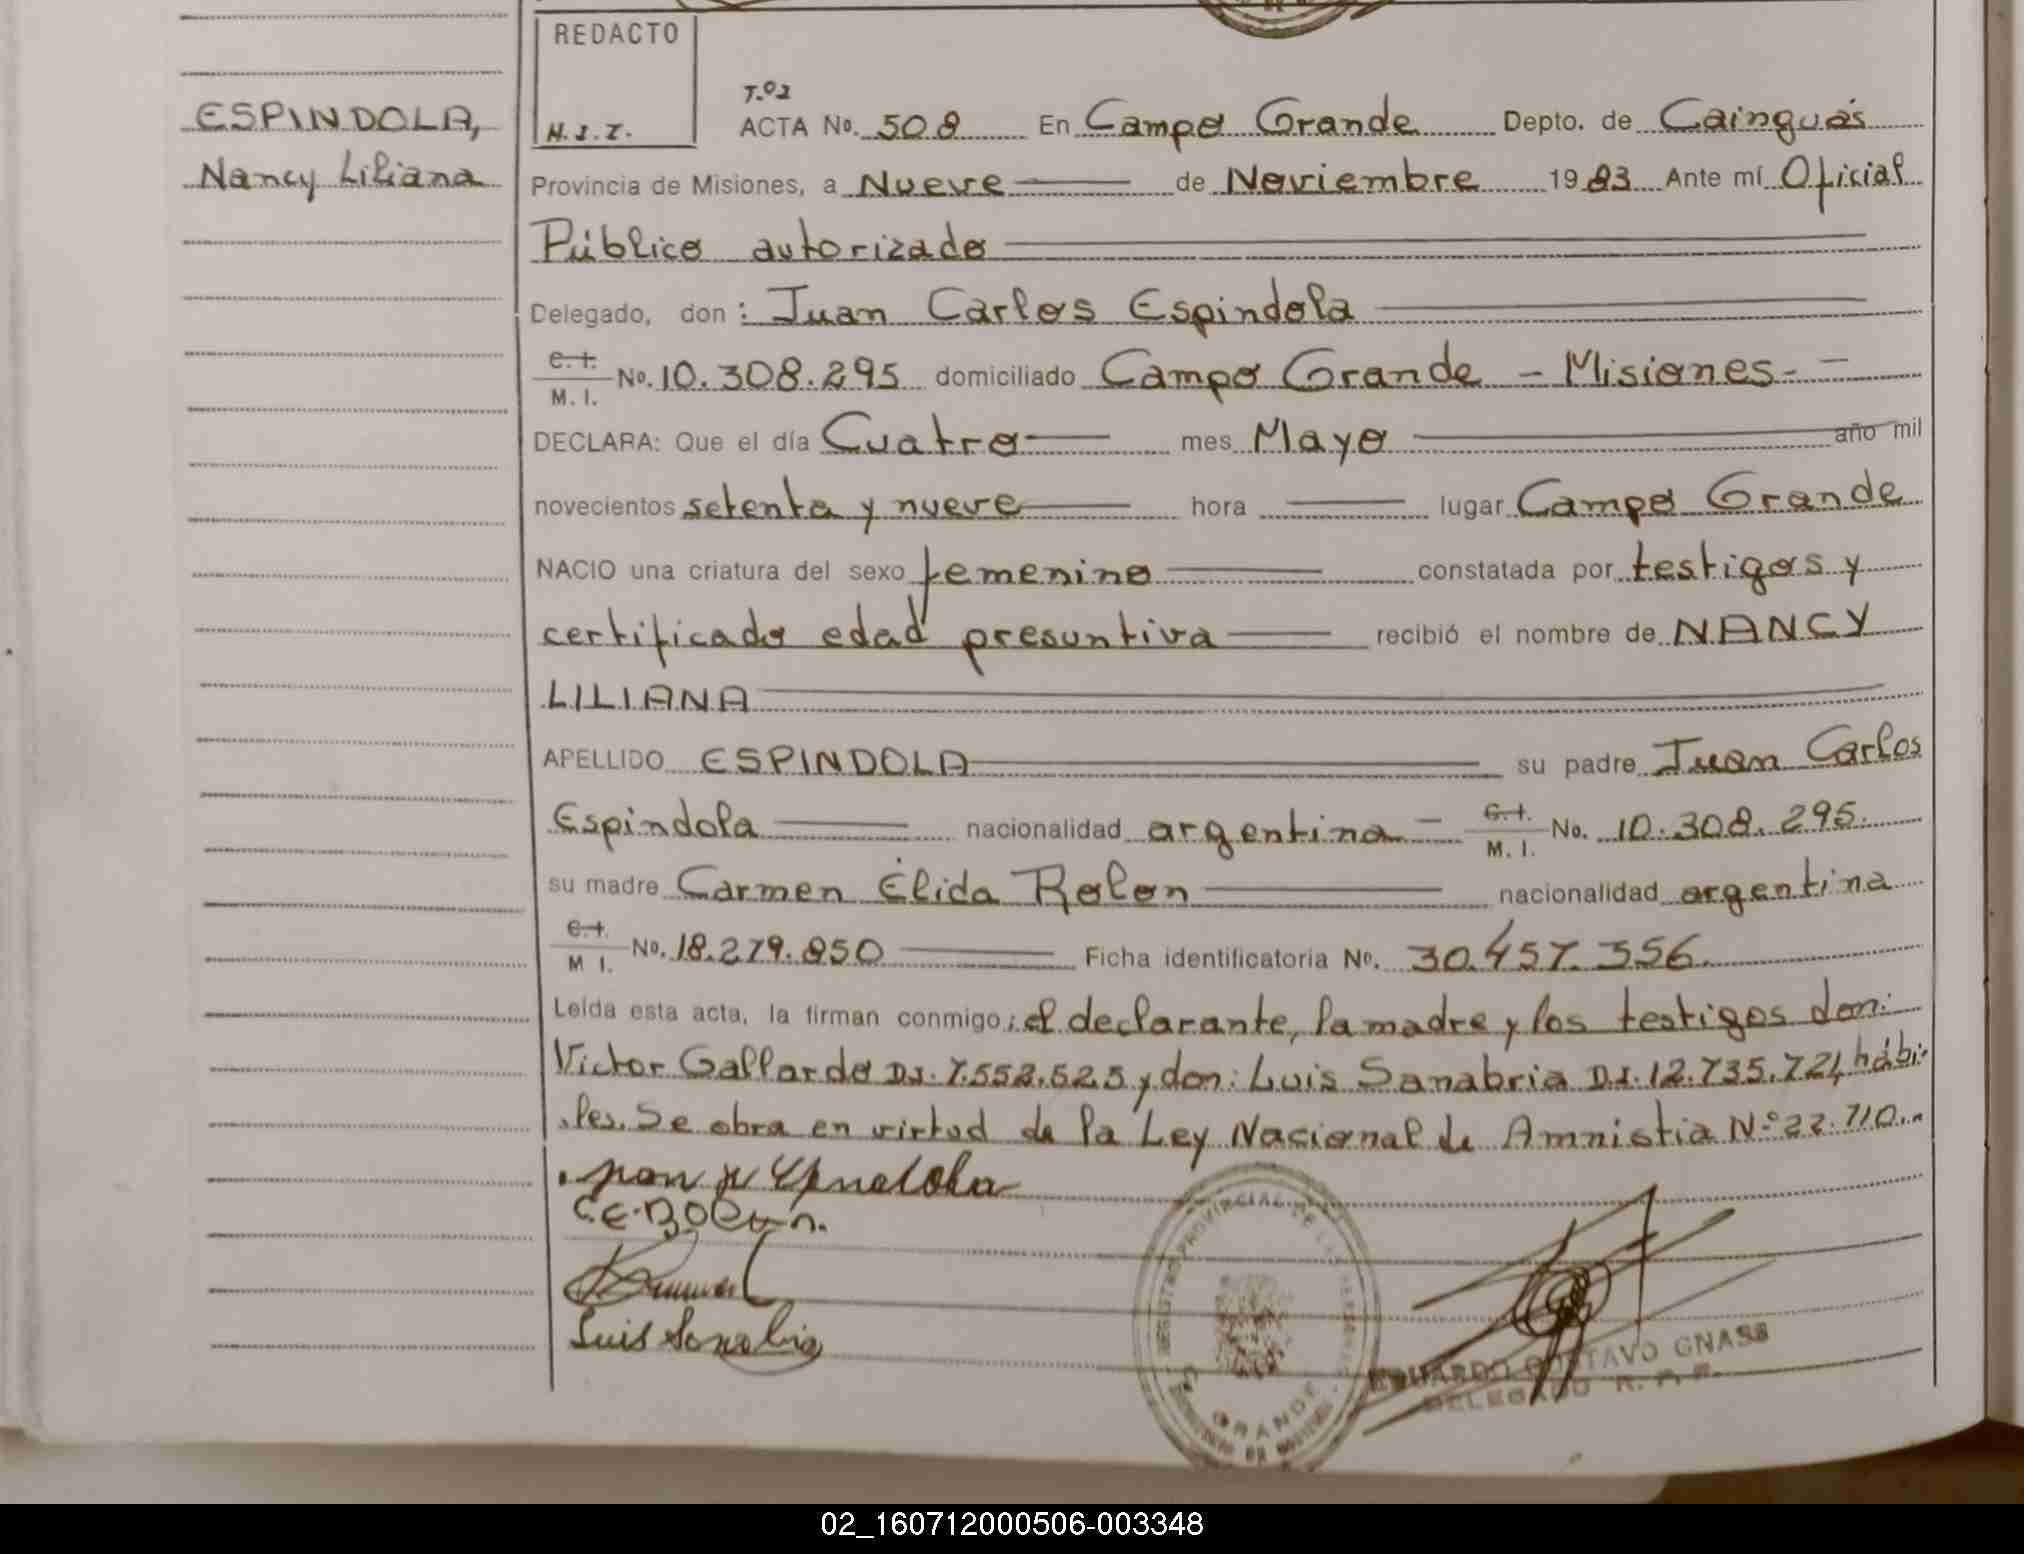 REDACTO
N.I.Z.
ESPINDOLA,
Nancy Liliana
T.º2
ACTA No. 508 En Campo Grande Depto. de Cainguás
Provincia de Misiones, a Nueve de Noviembre 1983 Ante mí Oficial
Público autorizado
Delegado, don: Juan Carlos Espindola
C.I. M.I. No. 10.308.295 domiciliado Campo Grande - Misiones-
DECLARA: Que el día Cuatro mes Mayo año mil
novecientos setenta y nueve hora lugar Campo Grande
NACIO una criatura del sexo femenino constatada por testigos y
certificado edad presuntiva recibió el nombre de NANCY
LILIANA
APELLIDO ESPINDOLA su padre Juan Carlos
Espindola nacionalidad argentina C.I. M.I. No. 10.308.295.
su madre Carmen Élida Rolon nacionalidad argentina
C.I. M I. No. 18.279.850 Ficha identificatoria No. 30.457.356.
Leída esta acta, la firman conmigo; el declarante, la madre y los testigos don:
Victor Gallardo D.I. 7.552.525 y don: Luis Sanabria D.I. 12.735.721, hábi-
les. Se obra en virtud de la Ley Nacional de Amnistia Nº 22.710.-
C.E. Rolon.
Luis Sanabria
REGISTRO PROVINCIAL DE LAS PERSONAS
GRANDE
EDUARDO GUSTAVO GNASS
DELEGADO R. P. P.
02_160712000506-003348